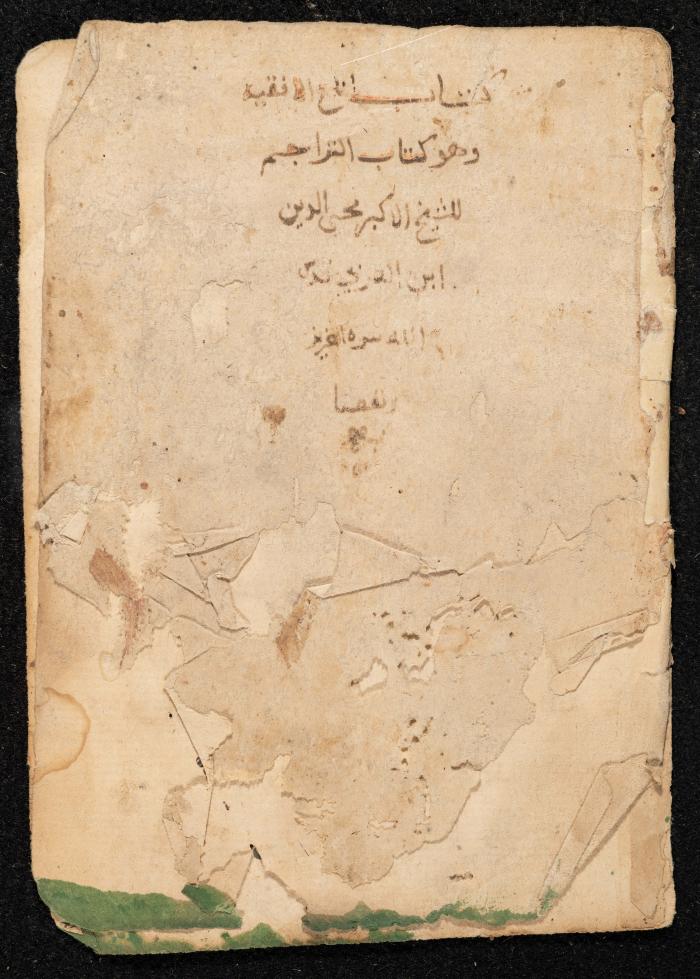 كتاب
وهو كتاب التراجم
للشيخ الاكبر محيي الدين
ابن العربي قدس
الله سره العزيز
ونفعنا
به